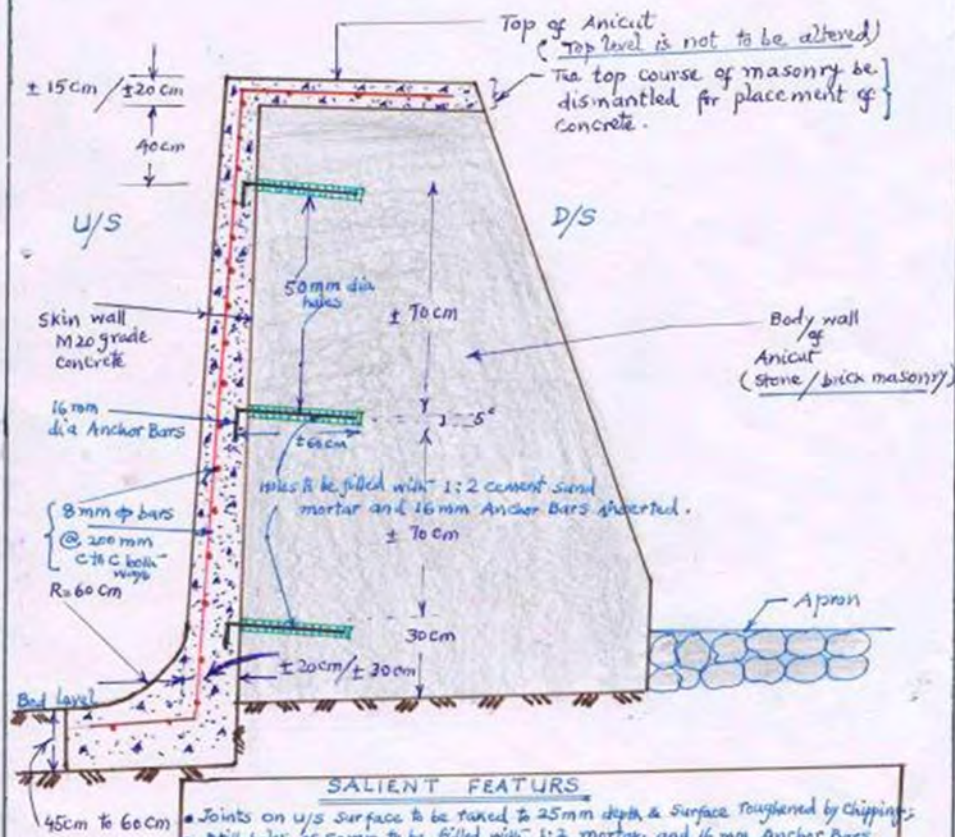 Top of Anicut
(Top level is not to be altered)
The top course of masonry be
dismantled for placement of
concrete.
± 15cm / ±20cm
40cm
U/S
D/S
50mm dia
holes
± 70cm
Skin wall
M20 grade
concrete
Body wall
of
Anicut
(Stone/brick masonry)
16mm
dia Anchor Bars
5°
±60cm
Holes to be filled with 1:2 cement sand
mortar and 16mm Anchor Bars inserted.
± 70cm
8mm φ bars
@ 200 mm
C to C both
ways
R=60cm
Apron
30cm
±20cm/± 30cm
Bed level
45cm to 60cm
SALIENT FEATURS
• Joints on U/S surface to be raked to 25mm depth & Surface roughened by Chipping;
to be filled with 1:2 mortar and 16mm Anchor Bars